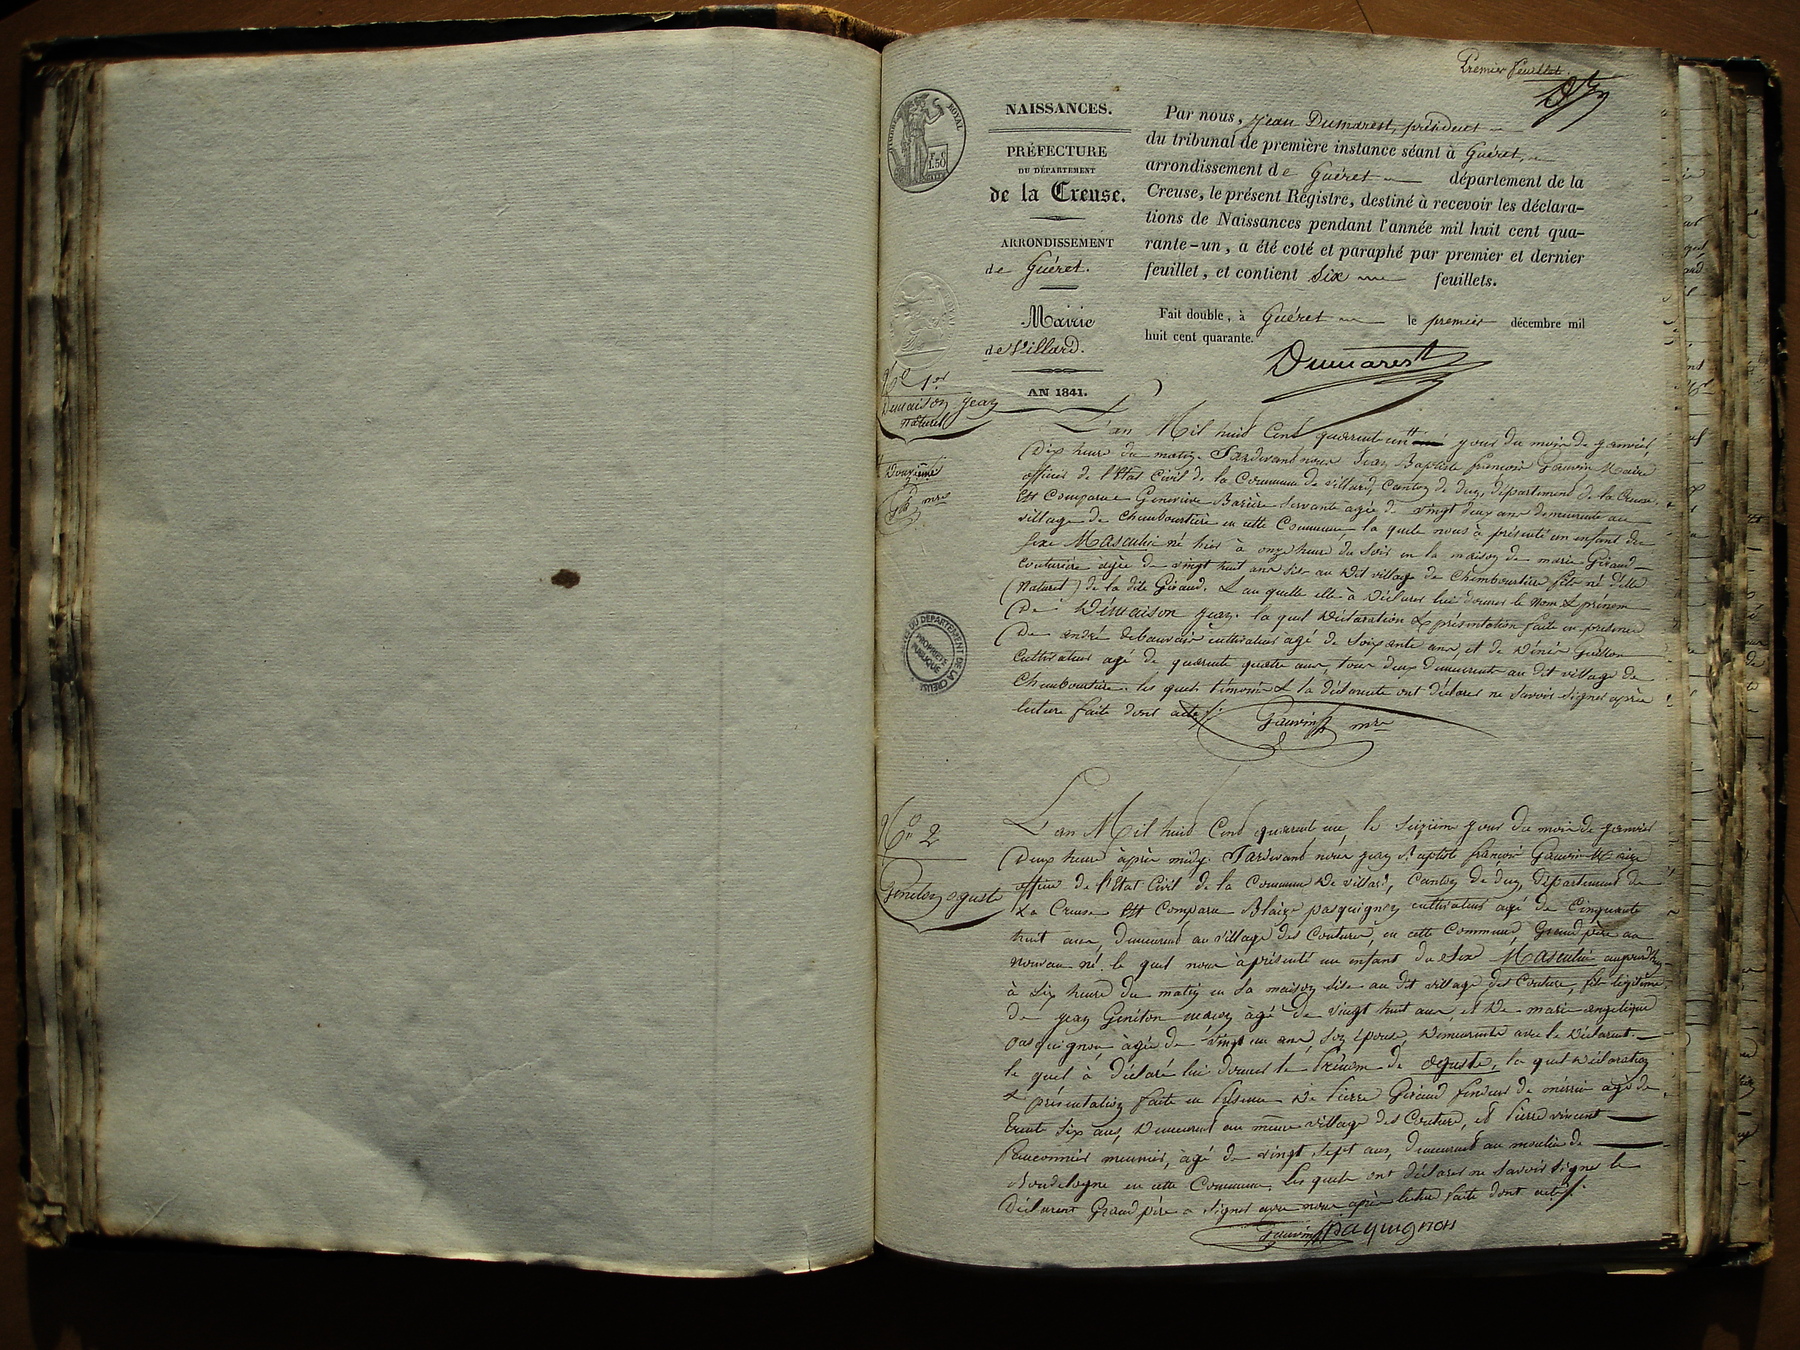 Premier feuillet.
NAISSANCES.
PRÉFECTURE
DU DÉPARTEMENT
de la Creuse.
ARRONDISSEMENT
de Guéret.
Mairie
de Villard.
AN 1841.
Par nous, Jean Dumarest, président
du tribunal de première instance séant à Guéret,
arrondissement de Guéret département de la
Creuse, le présent Registre, destiné à recevoir les déclara-
tions de Naissances pendant l'année mil huit cent qua-
rante-un, a été coté et paraphé par premier et dernier
feuillet, et contient Six feuillets.
Fait double, à Guéret le premier décembre mil
huit cent quarante.
Dumarest
ROYAL
1.50
No 1er
Demaison Jean
naturel
Douzième
mre
L'an Mil huit Cent quarent un jour du moin de janvier,
Dix heure du matin. Pardevant nous Jean Baptiste françoi Gauvin Maire
officier de l'Etat Civil de la Commune de villard, Canton de dun, département de la Creuse.
Est Comparue Genevieve Barière Servante agée de vingt deux ans demeurante au
village de Chembourtière en cette Commune, la quele nous à présenté un enfant du
sexe Masculin né hier à onze heure du Soir en la maison de marie Giraud
Couturière agée de vingt huit ans sise au dit village de Chembourtière fils né d'elle
(Naturel) de la dite Giraud. & au quelle elle à déclarer lui donner le nom & prénom
De Démaison Jean. la quel déclaration & présentation faite en présence
De andré debauvais cultivateur agé de soixante ans, et de Dénis Guillon
Cultivateur agé de quarente quatre ans, tous deux demeurente au dit village de
Chembourtière. les quels témoins & la déclarente ont déclarer ne savoir signer après
lecture faite dont acte
Gauvin mre
DU DÉPARTEMENT DE LA CREUSE
PROPRIÉTÉ
PUBLIQUE
No 2
Geniton oguste
L'an Mil huit Cent quarent un, le seizieme jour du moin de janvier
Deux heure après midy. Pardevant nous jean Baptiste françoi Gauvin Maire
officier de l'Etat Civil de la Commune de villard, Canton de dun, Département de
La Creuse Est Comparu Blaize pasquignon cultivateur agé de Cinquante
huit ans, demeurant au village des Couture, en cette Commune, Grand père au
nouveau né. le quel nous à présenté un enfant du Sex Masculin aujourd'huy
à Six heure du matin en sa maison sise au dit village des Couture, fils légitime
de jean Geniton maçon agé de vingt huit ans, et de marie angelique
pasquignon agée de vingt un ans, son épouse, demeurente avec le déclarent.
le quel à déclaré lui donner le Prénom de oguste, la quel déclaration
& présentation faite en présence De Pierre Giraud fendeur de mérrin agé de
trente Six ans, demeurant au même village des Couture, et Pierre vincent
Fauconnier meunier, agé de vingt Sept ans, demeurant au moulin de
en cette Commune. Les quels ont déclarer ne savoir signer le
Déclarent Grand père a signer avec nous après lecture faite dont acte
Gauvin Paquignon